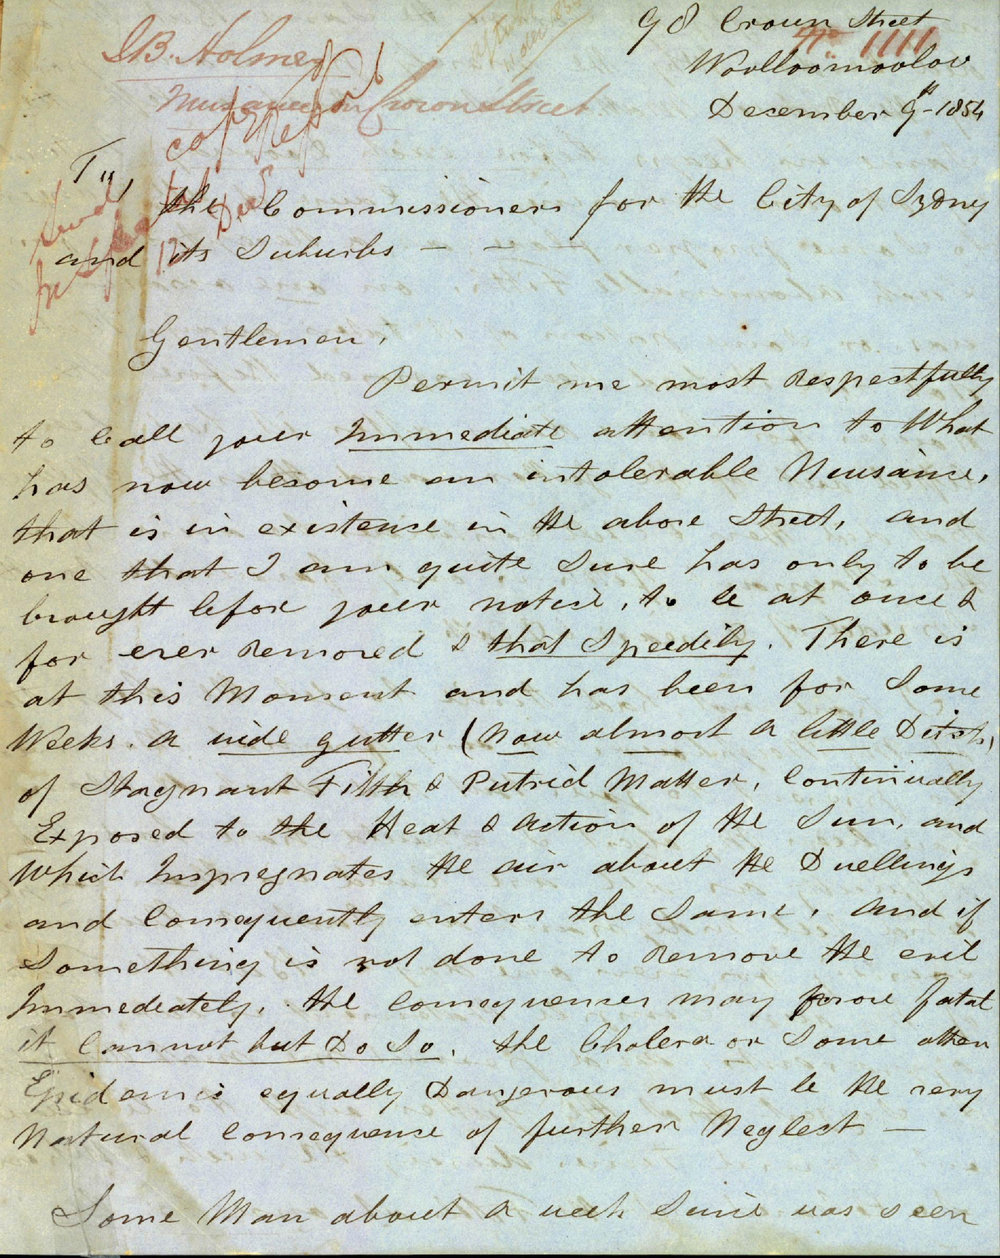 98 Crown Street
No. 1111
Woolloomooloo
December 9th - 1854
J B. Holmes
Nuisance in Crown Street
copy Report
12 Decr
To,
the Commissioners for the City of Sydney
and its Suburbs — —
Gentlemen,
Permit me most respectfully
to Call your Immediate attention to What
has now become an intolerable Nuisance,
that is in existence in the above Street, and
one that I am quite Sure has only to be
brought befor your notice, to be at once &
for ever Removed & that Speedily. There is
at this Moment and has been for Some
Weeks. a wide gutter (now almost a little Ditch)
of Stagnant Filth & Putrid Matter, Continually
Exposed to the Heat & Action of the Sun, and
Which Impregnates the air about the Dwellings
and Consequently enters the Same, and if
Something is not done to Remove the evil
Immediately, the Consequences may prove Fatal
it Cannot but Do So, the Cholera or Some other
Epidemic equally Dangerous must be the very
Natural Consequence of further Neglect —
Some Man about a week Since was seen